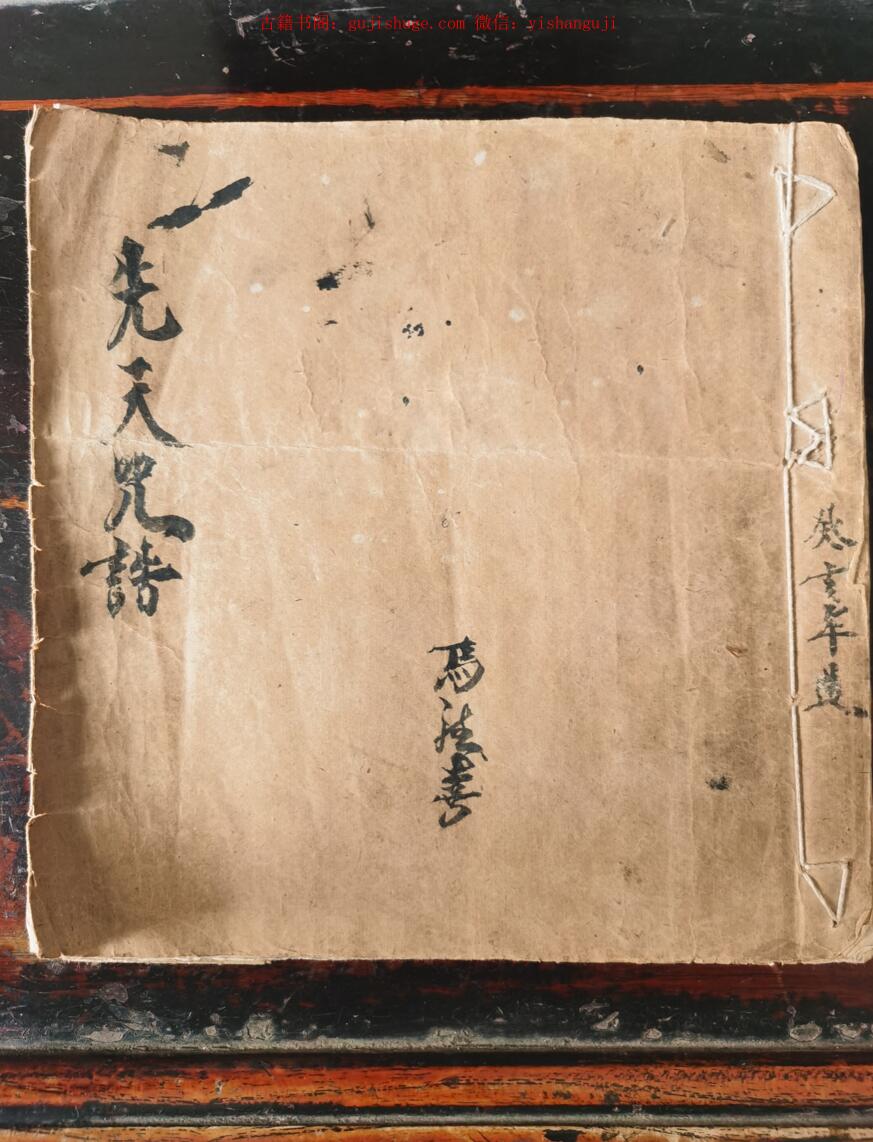 古籍书阁：gujishuge.com 微信：yishanguji
癸亥年造
馬法善
先天咒語